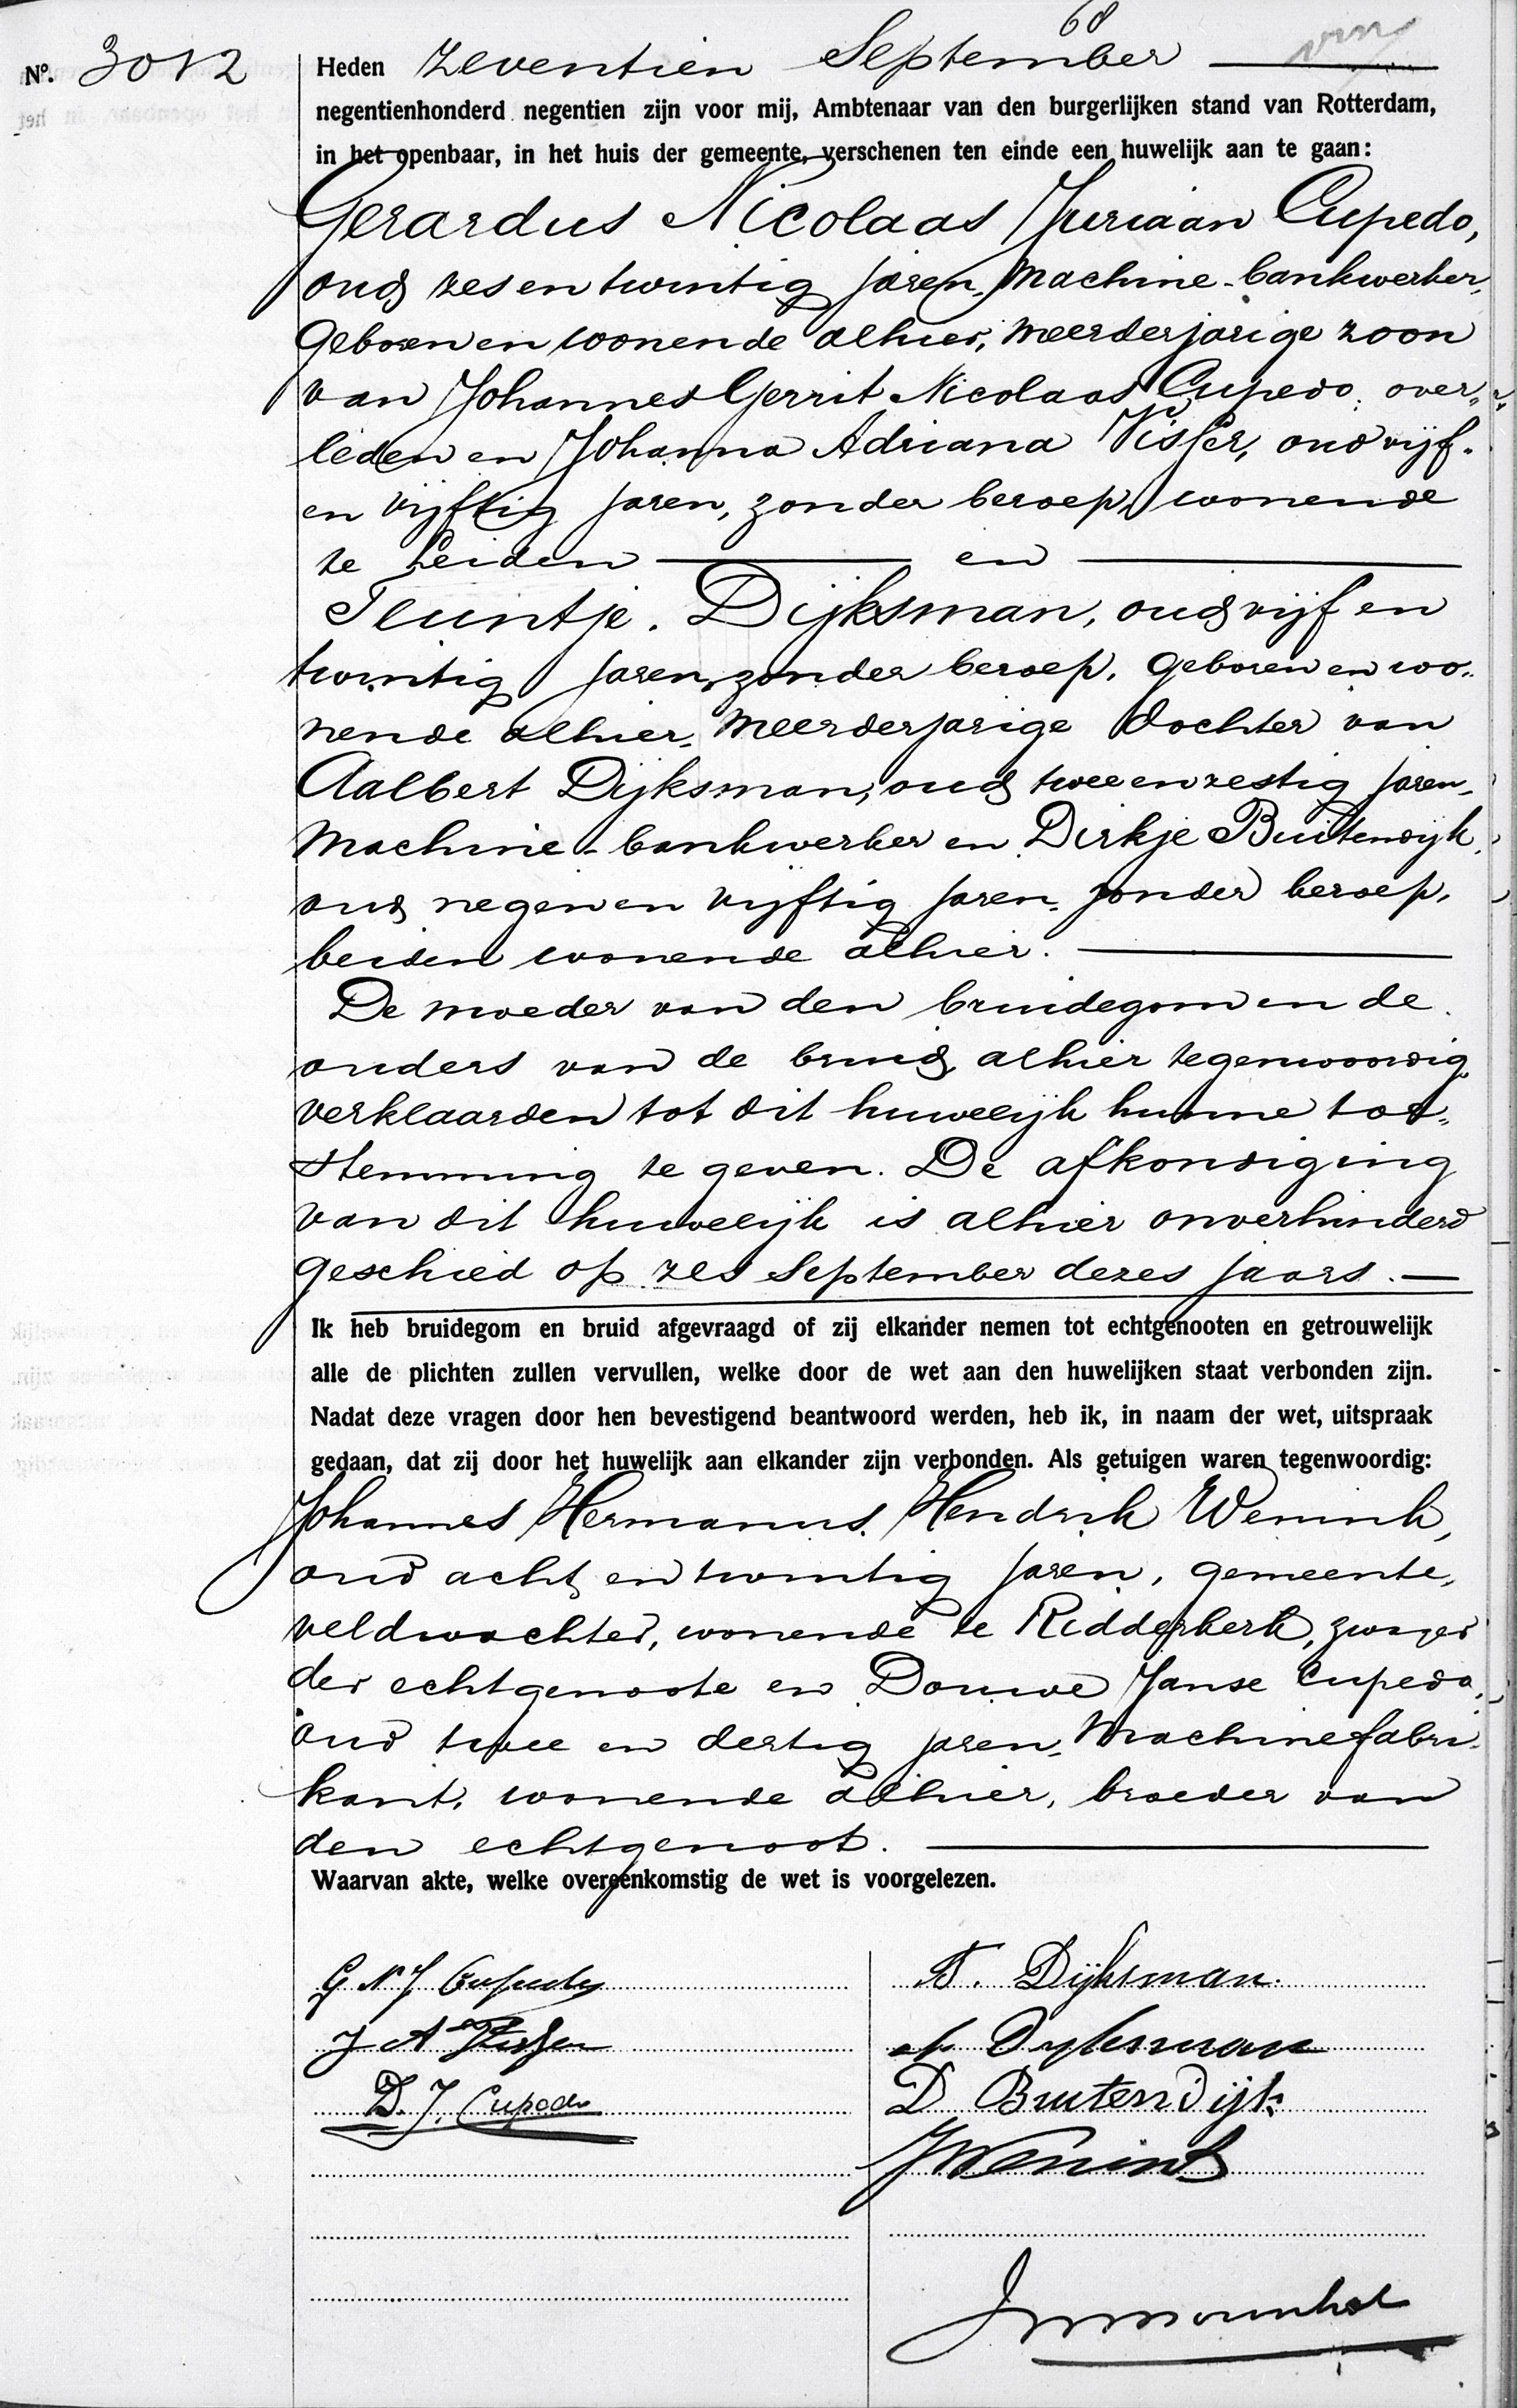 68
Nº. 3012
Heden zeventien September
negentienhonderd negentien zijn voor mij, Ambtenaar van den burgerlijken stand van Rotterdam,
in het openbaar, in het huis der gemeente, verschenen ten einde een huwelijk aan te gaan:
Gerardus Nicolaas Juriaan Cupedo,
oud zes en twintig jaren, machine-bankwerker,
geboren en wonende alhier, meerderjarige zoon
van Johannes Gerrit Nicolaas Cupedo, over-
leden en Johanna Adriana Visser, oud vijf-
en vijftig jaren, zonder beroep, wonende
te Leiden en
Teuntje Dijksman, oud vijf en
twintig jaren, zonder beroep, geboren en wo-
nende alhier, meerderjarige dochter van
Aalbert Dijksman, oud twee en zestig jaren,
machine-bankwerker en Dirkje Buitendijk,
oud negen en vijftig jaren, zonder beroep,
beiden wonende alhier.
De moeder van den bruidegom en de
ouders van de bruid, alhier tegenwoordig,
verklaarden tot dit huwelijk hunne toe-
stemming te geven. De afkondiging
van dit huwelijk is alhier onverhinderd
geschied op zes September dezes jaars.
Ik heb bruidegom en bruid afgevraagd of zij elkander nemen tot echtgenooten en getrouwelijk
alle de plichten zullen vervullen, welke door de wet aan den huwelijken staat verbonden zijn.
Nadat deze vragen door hen bevestigend beantwoord werden, heb ik, in naam der wet, uitspraak
gedaan, dat zij door het huwelijk aan elkander zijn verbonden. Als getuigen waren tegenwoordig:
Johannes Hermanus Hendrik Wenink,
oud acht en twintig jaren, gemeente-
veldwachter, wonende te Ridderkerk, zwager
der echtgenoote en Douwe Janse Cupedo,
oud twee en dertig jaren, machinefabri-
kant, wonende alhier, broeder van
den echtgenoot.
Waarvan akte, welke overeenkomstig de wet is voorgelezen.
G N J Cupedo
T. Dijksman
J A Visser
A Dyksman
D. J. Cupedo
D Buitendijk
JWenink